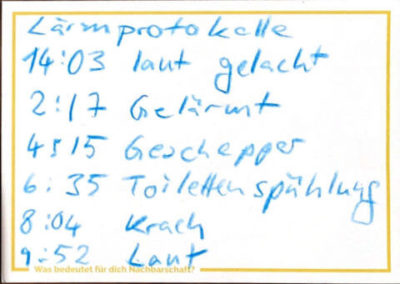 Lärmprotokolle
14:03 laut gelacht
2:17 Gelärmt
4:15 Geschepper
6:35 Toilettenspühlung
8:04 Krach
9:52 Laut
Was bedeutet für dich Nachbarschaft?